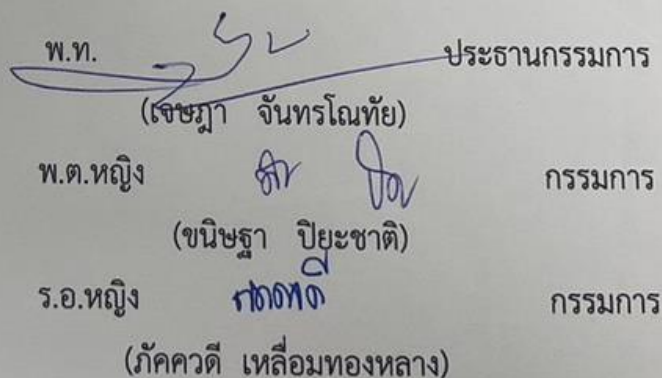 พ.ท. ประธานกรรมการ
(เจษฎา จันทรโณทัย)
พ.ต.หญิง กรรมการ
(ขนิษฐา ปิยะชาติ)
ร.อ.หญิง ภัคควดี กรรมการ
(ภัคควดี เหลื่อมทองหลาง)